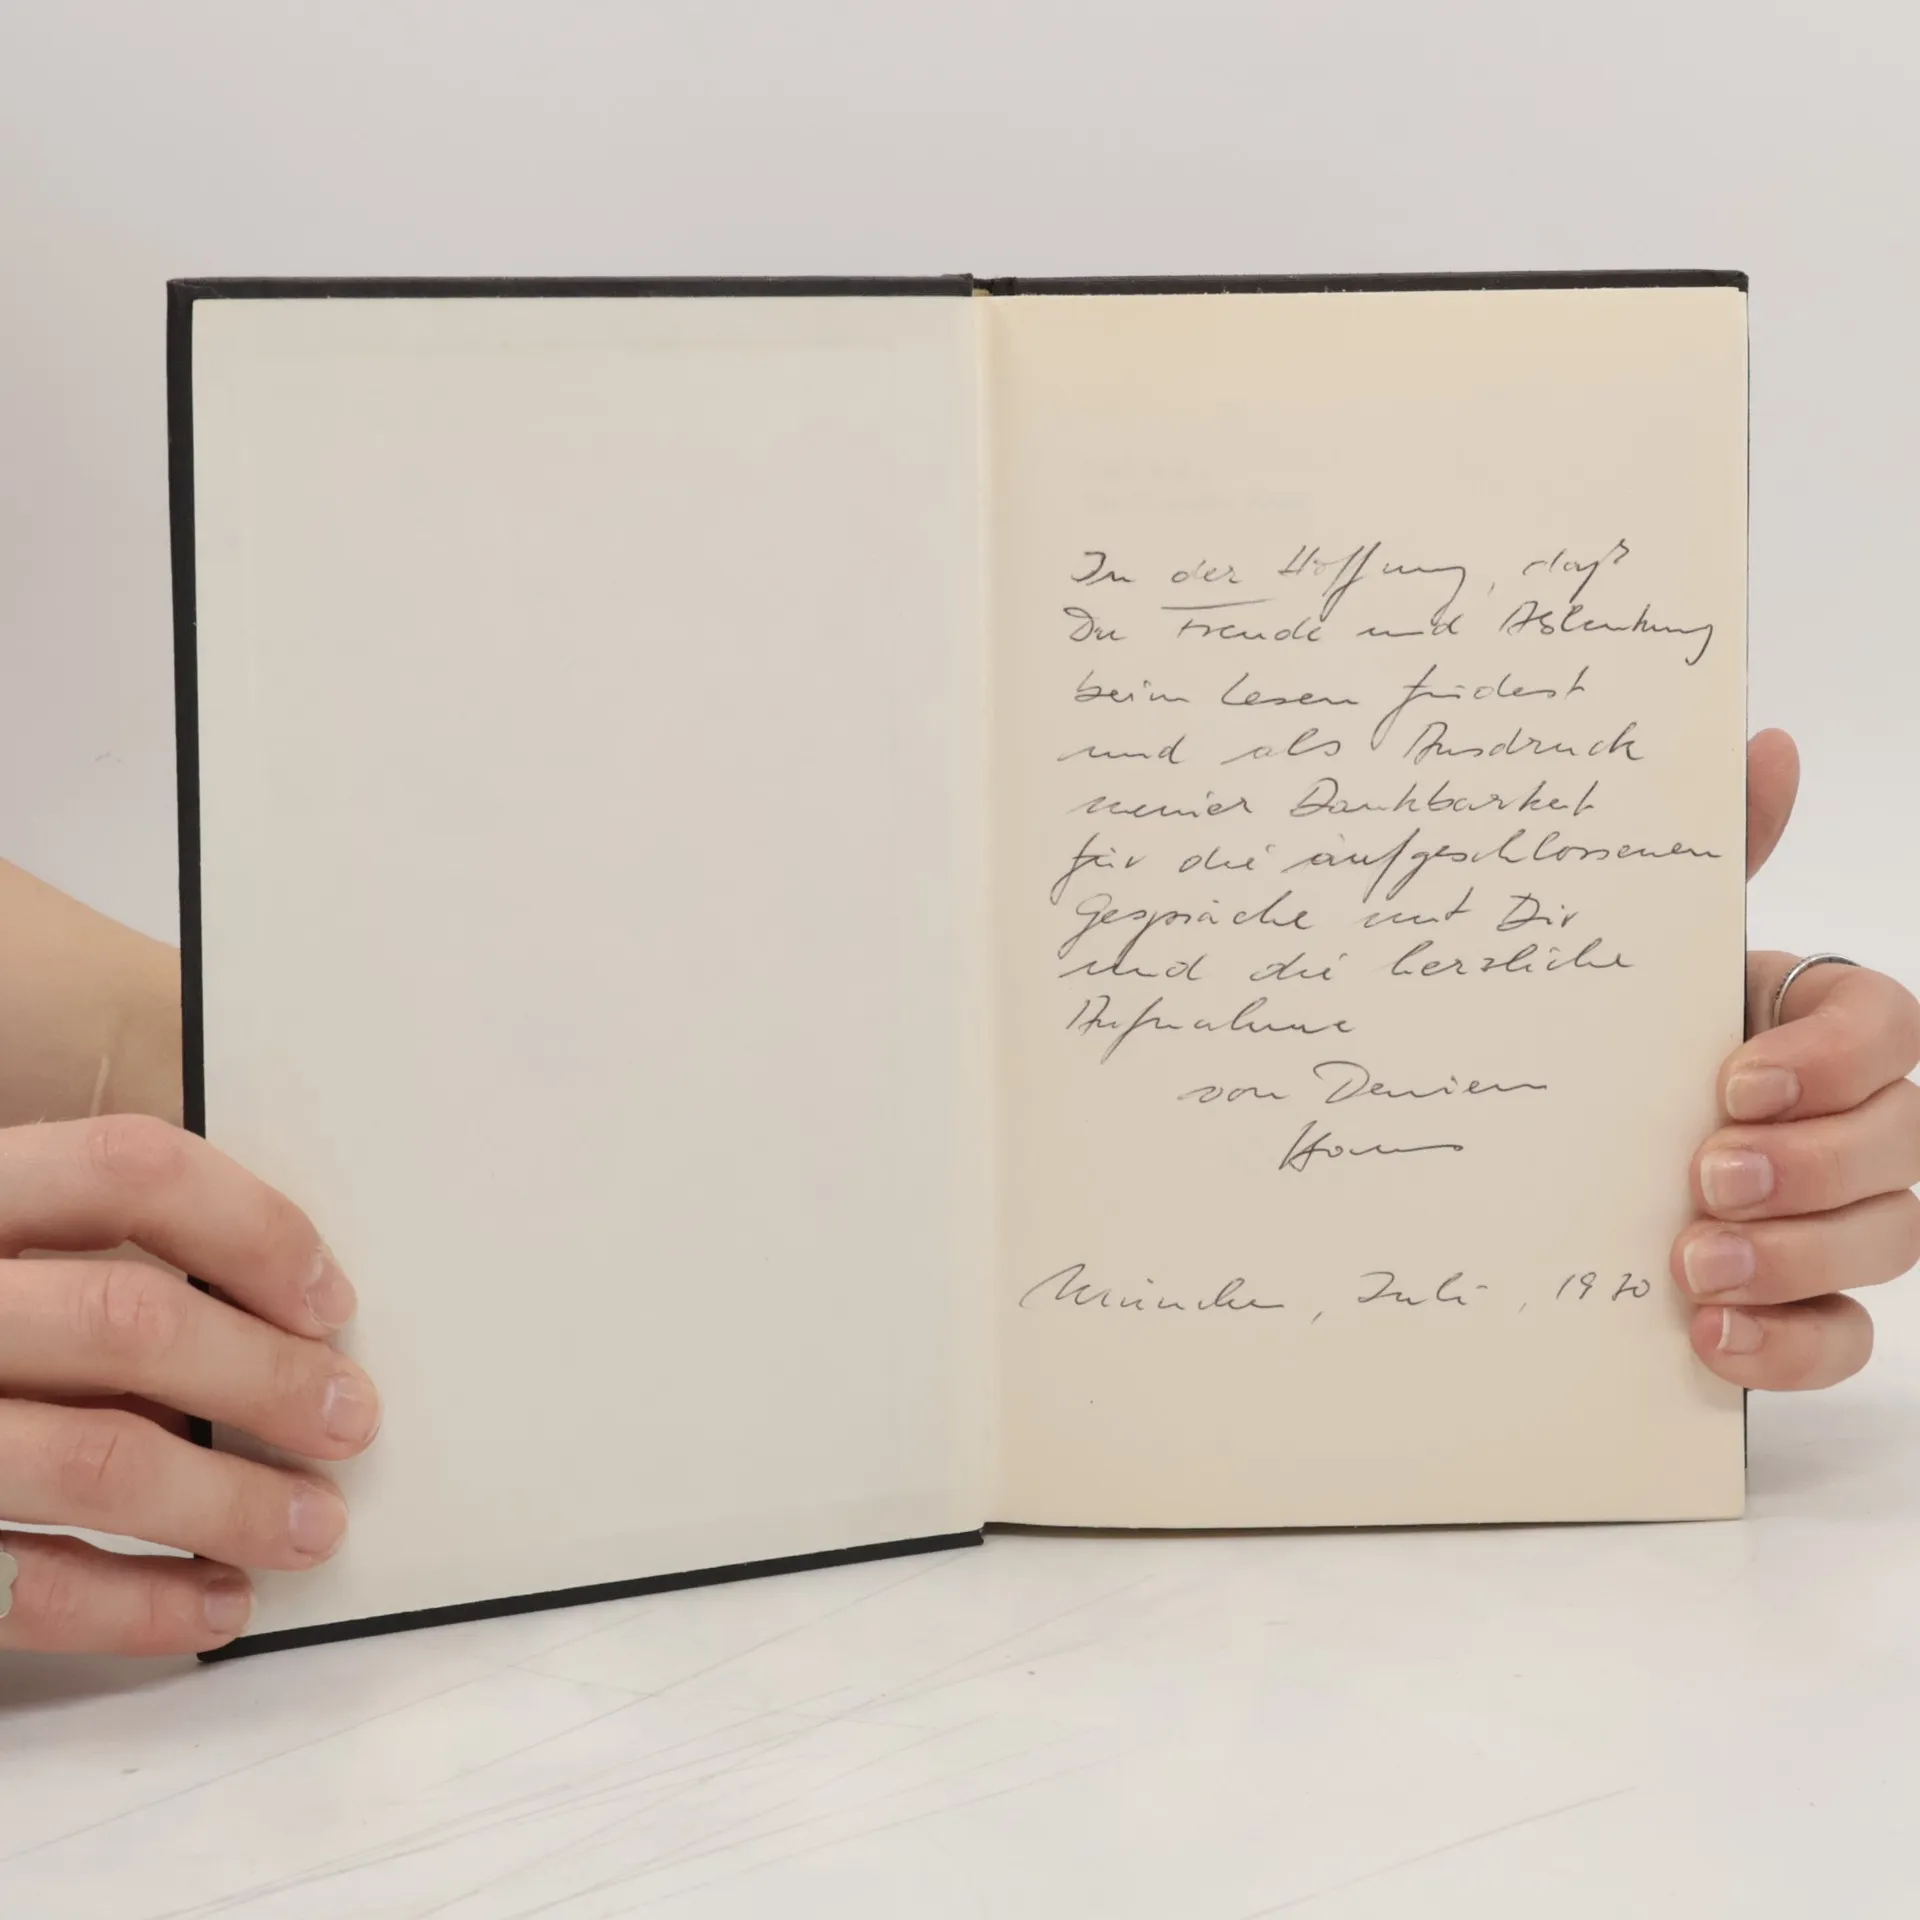 In der Hoffnung, daß
Du Freude und Ablenkung
beim Lesen findest
und als Ausdruck
meiner Dankbarkeit
für die aufgeschlossenen
Gespräche mit Dir
und die herzliche
Aufnahme
von Deinem
Hans
München, Juli, 1970